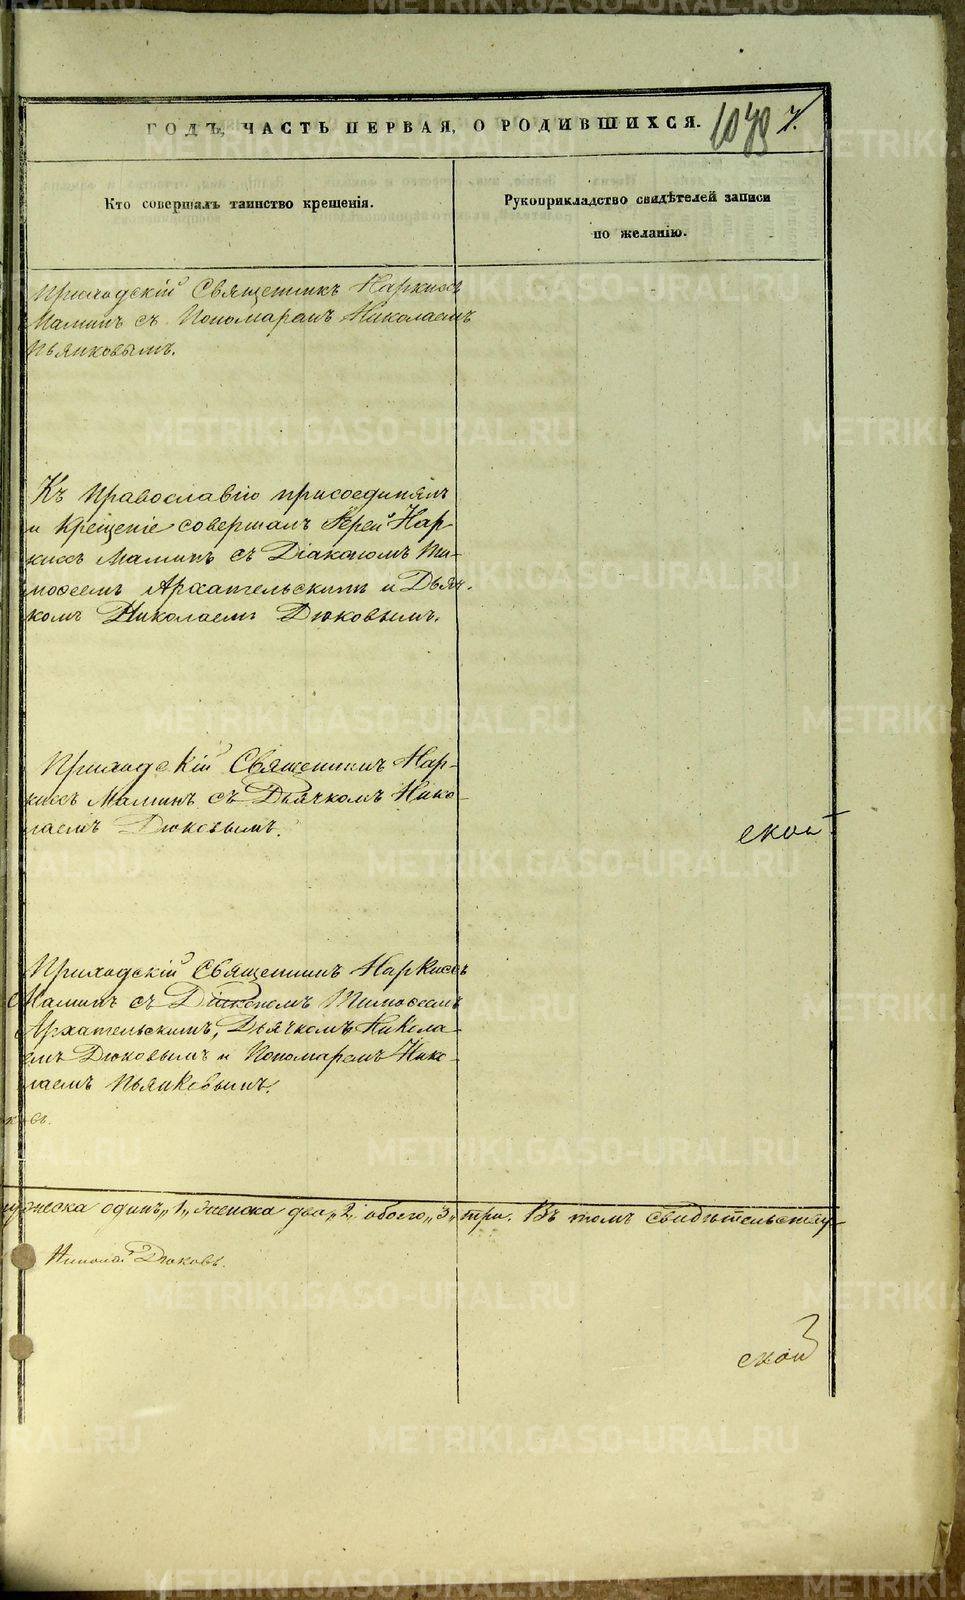 ГОДЪ, ЧАСТЬ ПЕРВАЯ, О РОДИВШИХСЯ.
7.
Кто совершалъ таинство крещенія.
Рукоприкладство свидѣтелей записи
по желанію.
Приходскій Священникъ Наркисъ
Маминъ съ Пономаремъ Николаемъ
Пьянковымъ.
Къ Православію присоединялъ
и Крещеніе совершалъ Іерей Нар-
кисъ Маминъ съ Діакономъ Ти-
моѳеемъ Архангельскимъ и Дьяч-
комъ Николаемъ Дюковымъ.
Приходскій Священникъ Нар-
кисъ Маминъ съ Дьячкомъ Нико-
лаемъ Дюковымъ.
ской
Приходскій Священникъ Наркисъ
Маминъ съ Діакономъ Тимоѳеемъ
Архангельскимъ, Дьячкомъ Никола-
емъ Дюковымъ и Пономаремъ Нико-
лаемъ Пьянковымъ.
мужеска одинъ „1„ женска два „2„ обоего „3„ три. Въ томъ свидѣтельству-
Николай Дюковъ.
ской
METRIKI.GASO-URAL.RU